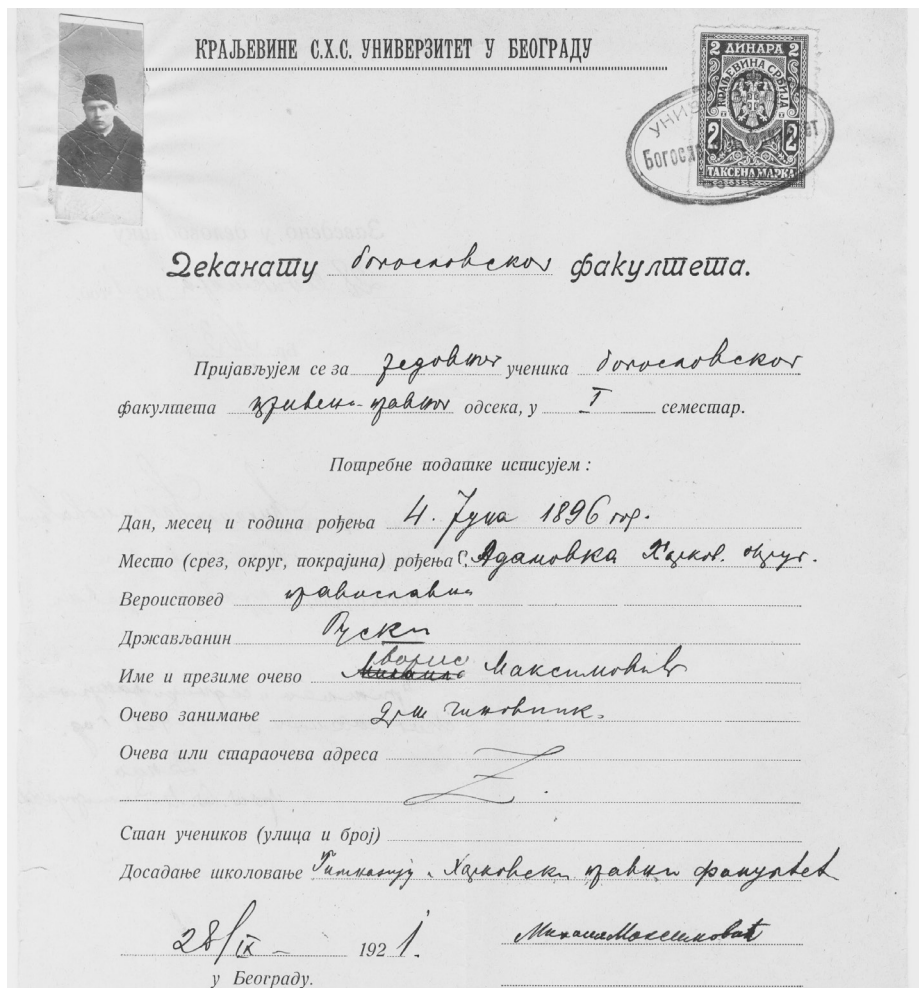 КРАЉЕВИНЕ С.Х.С. УНИВЕРЗИТЕТ У БЕОГРАДУ
2 ДИНАРА 2
КРАЉЕВИНА СРБИЈА
2 2
ТАКСЕНА МАРКА
Деканату богословског факултета.
Пријављујем се за редовног ученика богословског
факултета црквено-правног одсека, у I семестар.
Потребне податке исписујем :
Дан, месец и година рођења 4. Јуна 1896 год.
Место (срез, округ, покрајина) рођења С. Адамовка Харков. округ.
Вероисповед православни
Држављанин Руски
Име и презиме очево Борис Максимовић
Очево занимање држ чиновник.
Очева или стараочева адреса
Стан учеников (улица и број)
Досадање школовање Гимназију и Харковски правни факултет
28/IX - 1921.
Михаил Максимовић
у Београду.